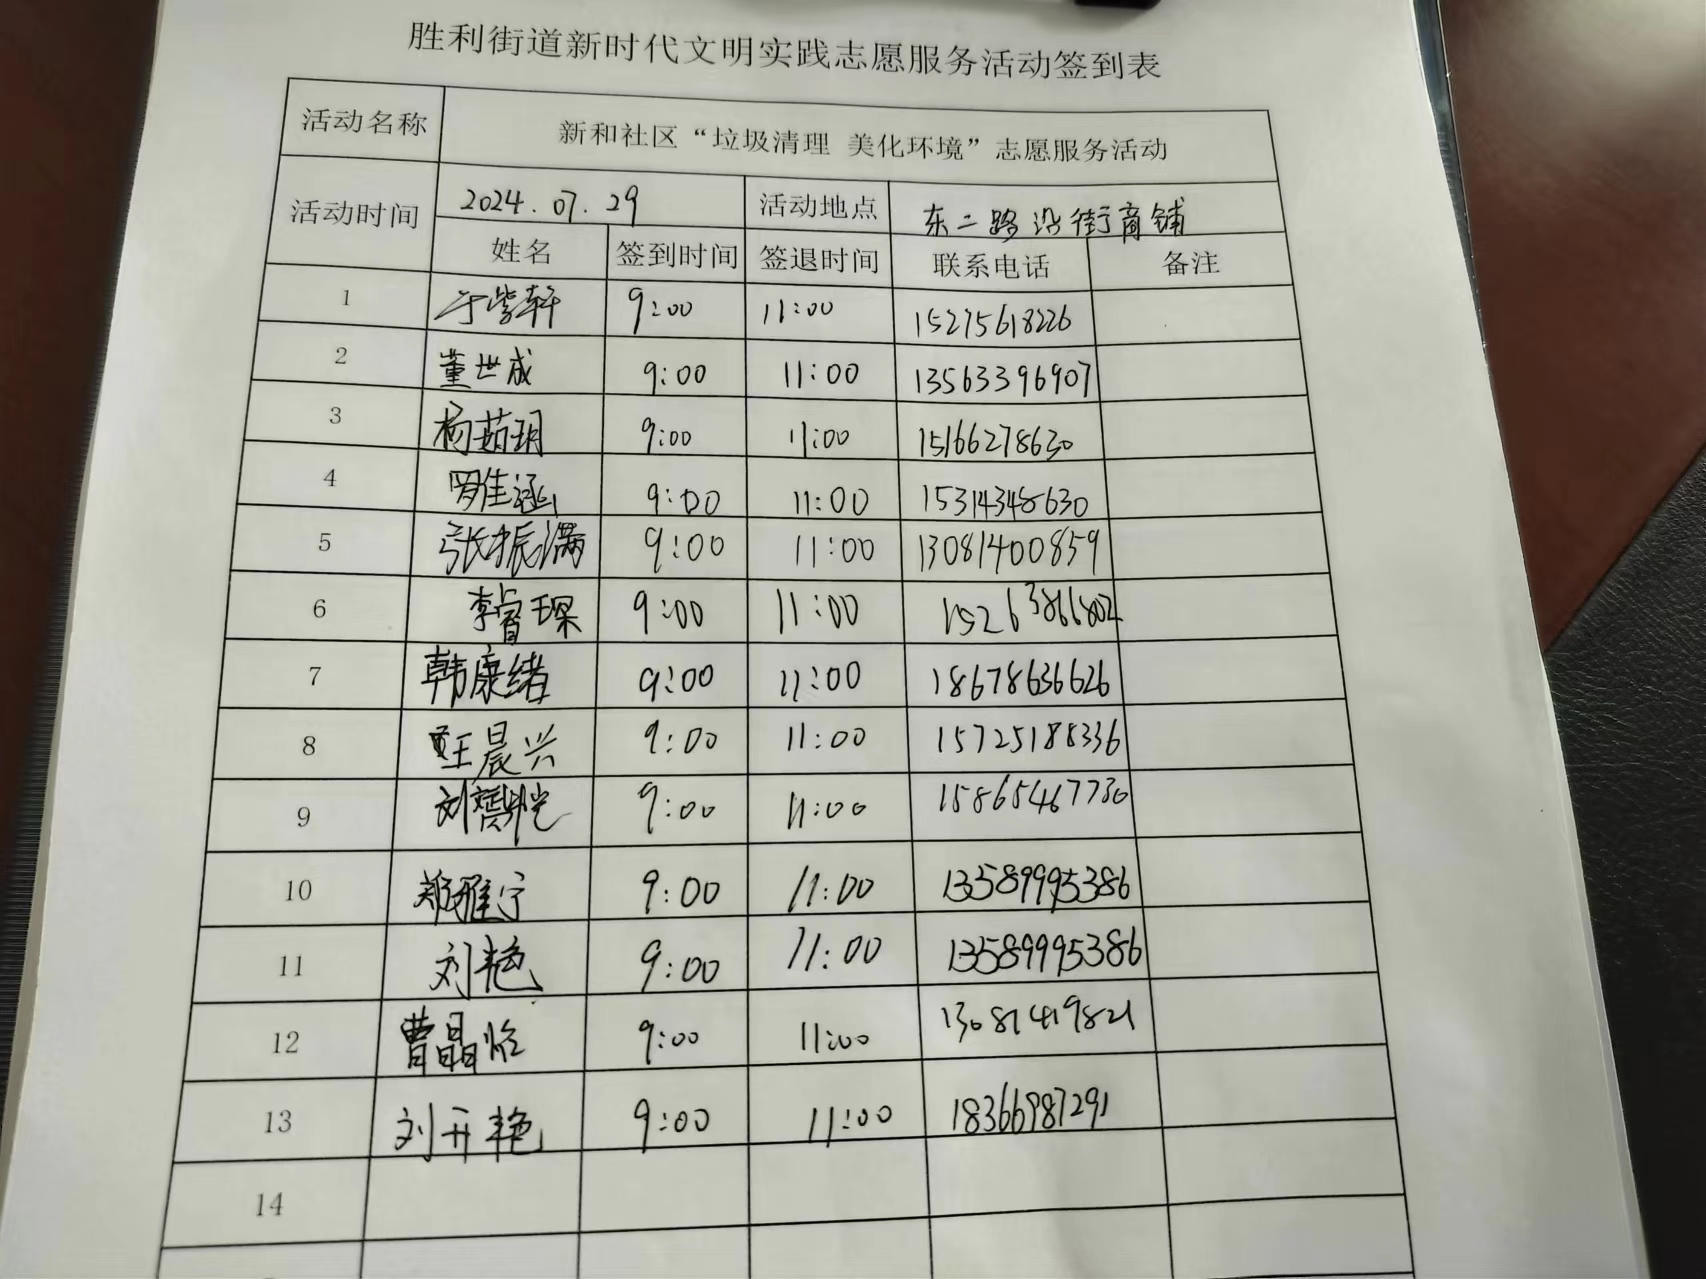 胜利街道新时代文明实践志愿服务活动签到表
活动名称 新和社区“垃圾清理 美化环境”志愿服务活动
活动时间 2024.07.29 活动地点 东二路沿街商铺
姓名 签到时间 签退时间 联系电话 备注
1 于紫轩 9:00 11:00 15275618226
2 董世成 9:00 11:00 13563396907
3 杨茹玥 9:00 11:00 15166278630
4 罗佳涵 9:00 11:00 15314348630
5 张振满 9:00 11:00 13081400859
6 李睿琛 9:00 11:00 15263866802
7 韩康绪 9:00 11:00 18678636626
8 王晨兴 9:00 11:00 15725188336
9 刘 9:00 11:00 15865467730
10 郑雅宁 9:00 11:00 13589995386
11 刘艳 9:00 11:00 13589995386
12 曹晶怡 9:00 11:00 13081419821
13 刘开艳 9:00 11:00 18366987291
14